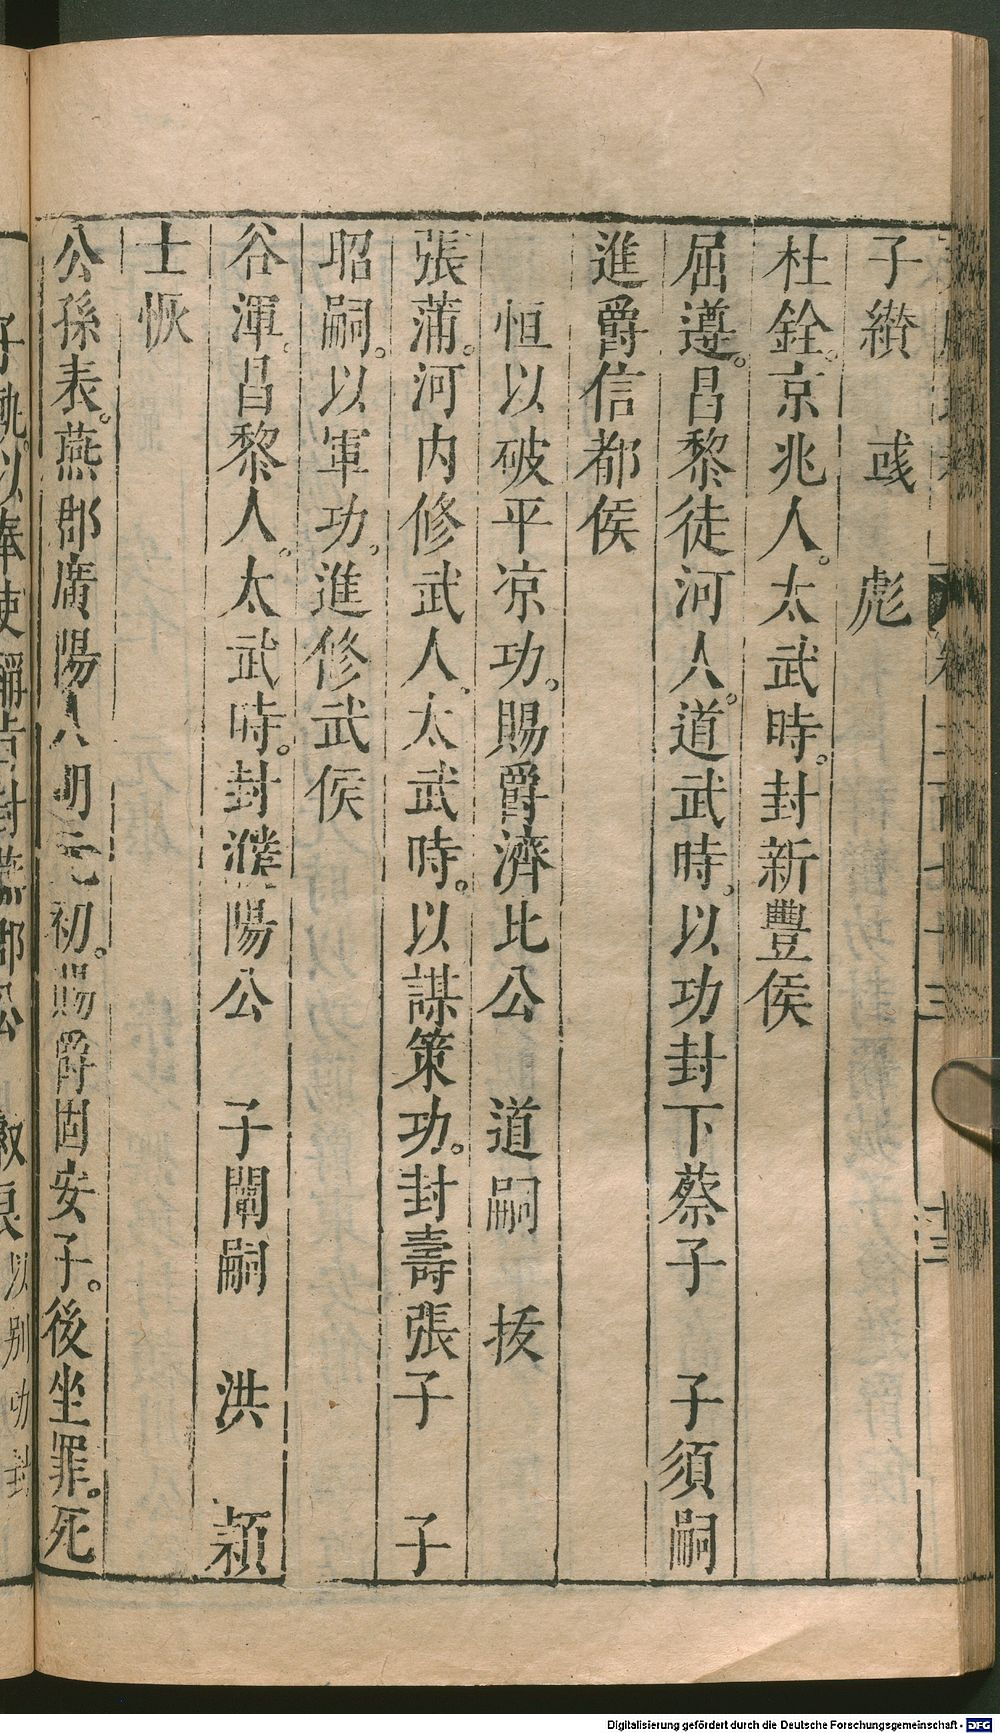 子纘　彧　彪
杜銓。京兆人。太武時。封新豐侯
屈遵。昌黎徒河人。道武時。以功封下蔡子　子須嗣
進爵信都侯
恒以破平凉功。賜爵濟比公　道嗣　拔
張蒲。河内修武人。太武時。以謀策功。封壽張子　子
昭嗣。以軍功。進修武侯
谷渾。昌黎人。太武時。封濮陽公　子闡嗣　洪　穎
士恢
公孫表。燕郡廣陽人明元初。賜爵固安子。後坐罪。死
子軌。以奉使稱旨封燕郡公　叡良以别功封
二百七十三
十三
Digitalisierung gefördert durch die Deutsche Forschungsgemeinschaft - DFG